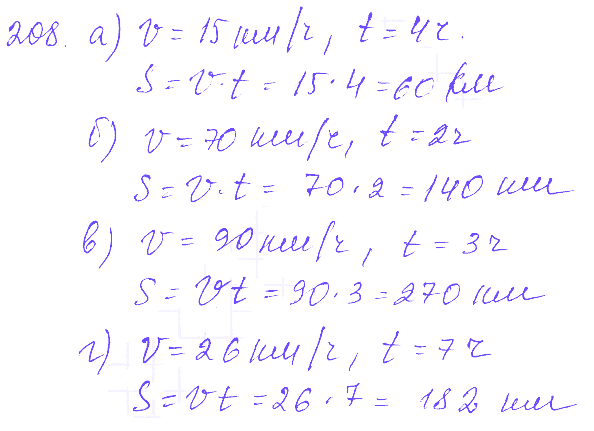 208. а) v = 15 км/ч, t = 4ч.
S = v·t = 15·4 = 60 км
б) v = 70 км/ч, t = 2ч
S = v·t = 70·2 = 140 км
в) v = 90 км/ч, t = 3ч
S = vt = 90·3 = 270 км
г) v = 26 км/ч, t = 7ч
S = vt = 26·7 = 182 км